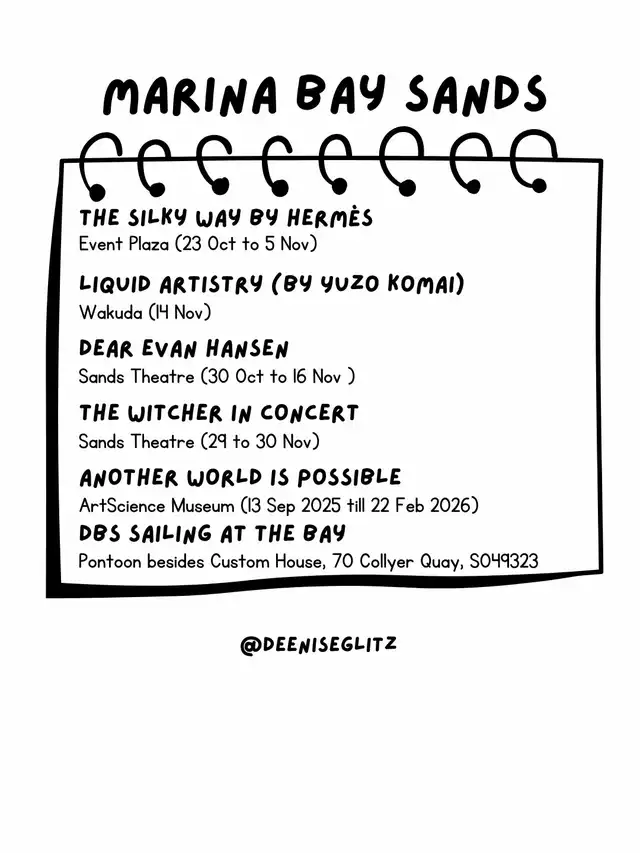 MARINA BAY SANDS
THE SILKY WAY BY HERMĖS
Event Plaza (23 Oct to 5 Nov)
LIQUID ARTISTRY (BY YUZO KOMAI)
Wakuda (14 Nov)
DEAR EVAN HANSEN
Sands Theatre (30 Oct to 16 Nov )
THE WITCHER IN CONCERT
Sands Theatre (29 to 30 Nov)
ANOTHER WORLD IS POSSIBLE
ArtScience Museum (13 Sep 2025 till 22 Feb 2026)
DBS SAILING AT THE BAY
Pontoon besides Custom House, 70 Collyer Quay, S049323
@DEENISEGLITZ